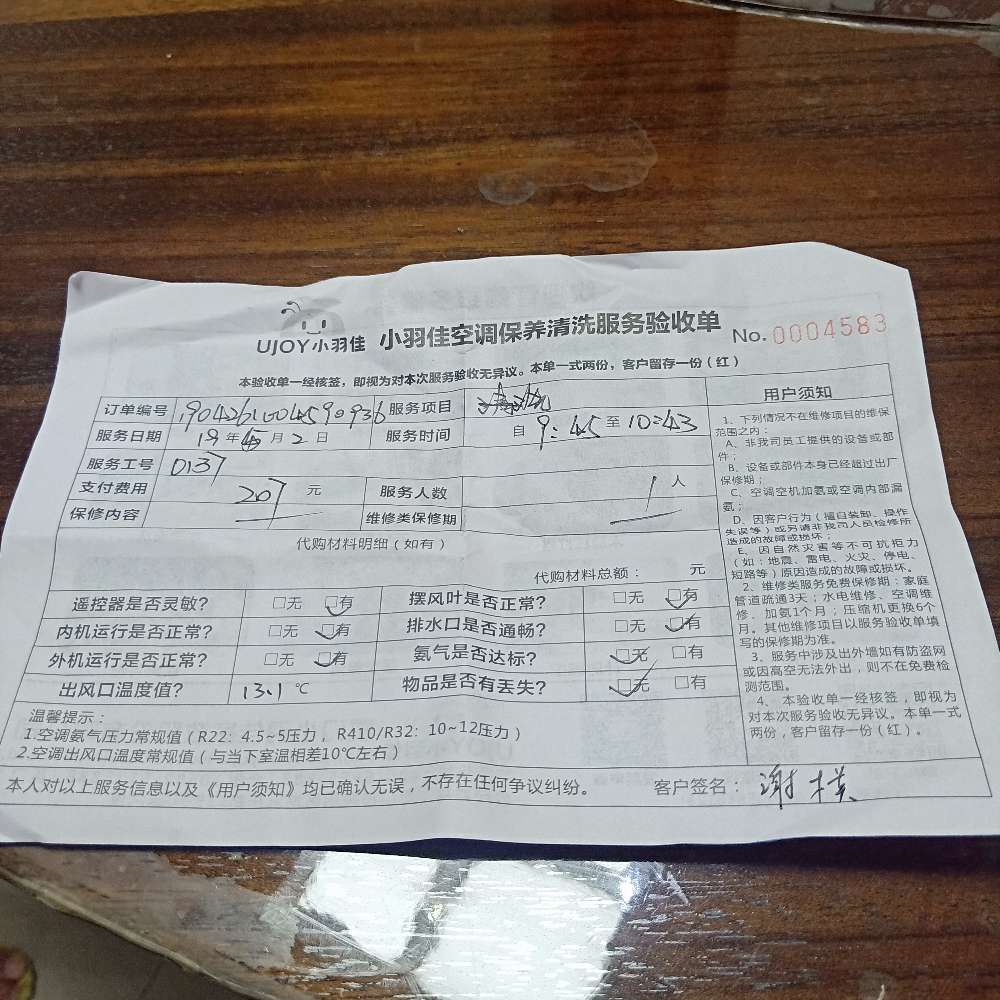 UJOY小羽佳 小羽佳空调保养清洗服务验收单 No.0004583
本验收单一经核签，即视为对本次服务验收无异议。本单一式两份，客户留存一份（红）
订单编号 服务项目 清洗
服务日期 19年 月2日 服务时间 自9:45至10:43
服务工号 0137
支付费用 207元 服务人数 1人
保修内容 维修类保修期
代购材料明细（如有）
代购材料总额： 元
遥控器是否灵敏？ □无 □有 摆风叶是否正常？ □无 □有
内机运行是否正常？ □无 □有 排水口是否通畅？ □无 □有
外机运行是否正常？ □无 □有 氨气是否达标？ □无 □有
出风口温度值？ 13.1℃ 物品是否有丢失？ □无 □有
温馨提示：
1.空调氨气压力常规值（R22：4.5~5压力，R410/R32：10~12压力）
2.空调出风口温度常规值（与当下室温相差10℃左右）
本人对以上服务信息以及《用户须知》均已确认无误，不存在任何争议纠纷。 客户签名：谢
用户须知
1、下列情况不在维修项目的维保
范围之内：
A、非我司员工提供的设备或部
件；
B、设备或部件本身已经超过出厂
保修期；
C、空调空机加氨或空调内部漏
氨；
D、因客户行为（擅自装卸、操作
失误等）或另请非我司人员检修所
造成的故障或损坏；
E、因自然灾害等不可抗拒力
（如：地震、雷电、火灾、停电、
短路等）原因造成的故障或损坏。
2、维修类服务免费保修期：家庭
管道疏通3天；水电维修、空调维
修、加氨1个月；压缩机更换6个
月。其他维修项目以服务验收单填
写的保修期为准。
3、服务中涉及出外墙如有防盗网
或因高空无法外出，则不在免费检
测范围。
4、本验收单一经核签，即视为
对本次服务验收无异议。本单一式
两份，客户留存一份（红）。